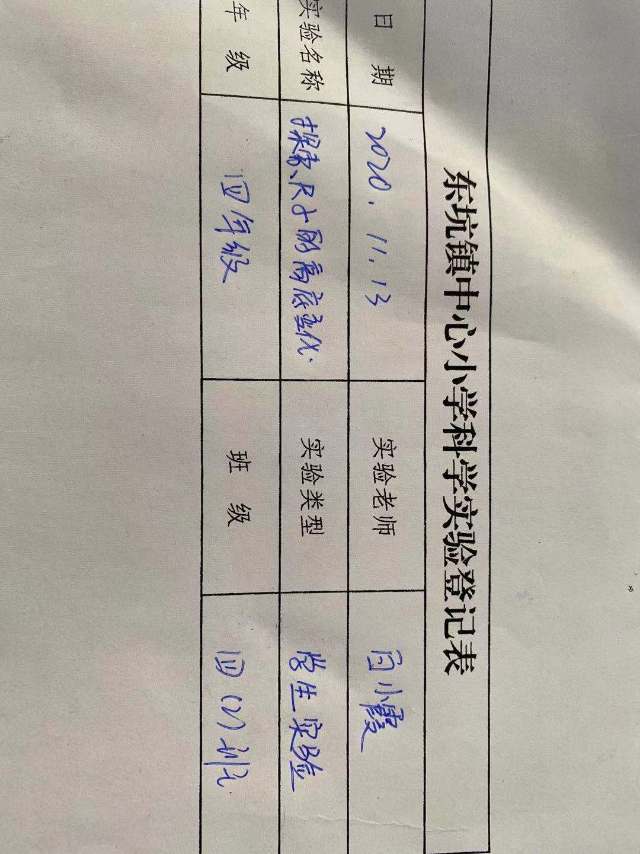 东坑镇中心小学科学实验登记表
日 期 2020.11.13 实验老师 闫小霞
实验名称 探索尺子的高低变化. 实验类型 学生实验
年 级 四年级 班 级 四(2)班